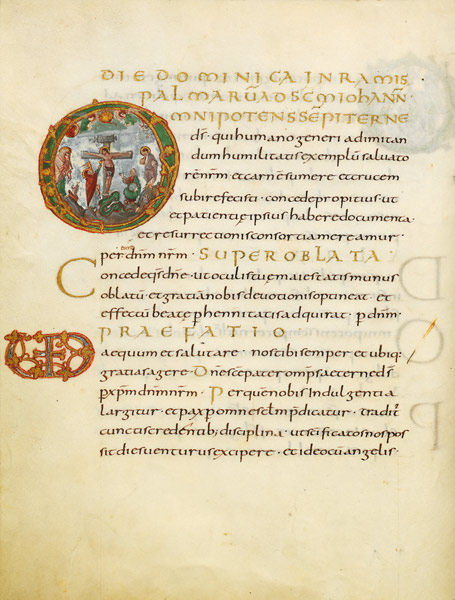 DIE DOMINICA IN RAMIS
PALMARŪ AD SC̄M IOHANN·
OMNIPOTENS SEMPITERNE
d̄s· qui humano generi ad imitan
dum humilitatis exemplū saluato
rē nr̄m et carnē sumere et crucem
subire fecisti · concede propitius ut
et patientię ipsius habere documenta·
et resurrectionis consortia mereamur·
per dn̄m nr̄m · SUPER OBLATA
Concede qs̄ dn̄e · ut oculis tuę maiestatis munus
oblatū et gratiā nobis deuotionis optineat · et
effectū beatę perhennitatis adquirat · p dn̄m·
PRAEFATIO
aequum et salutare · nos tibi semper et ubiq;
gratias agere · Dn̄e sc̄e pater omp̄s aeterne d̄s
p xp̄m dn̄m nr̄m · Per quē nobis indulgentia
largitur · et pax p omne sc̄lm p̄dicatur · tradit̄
cunctis credentib; disciplina · ut sc̄ificatos nos pos
sit dies uenturus excipere · et ideo cū angelis·